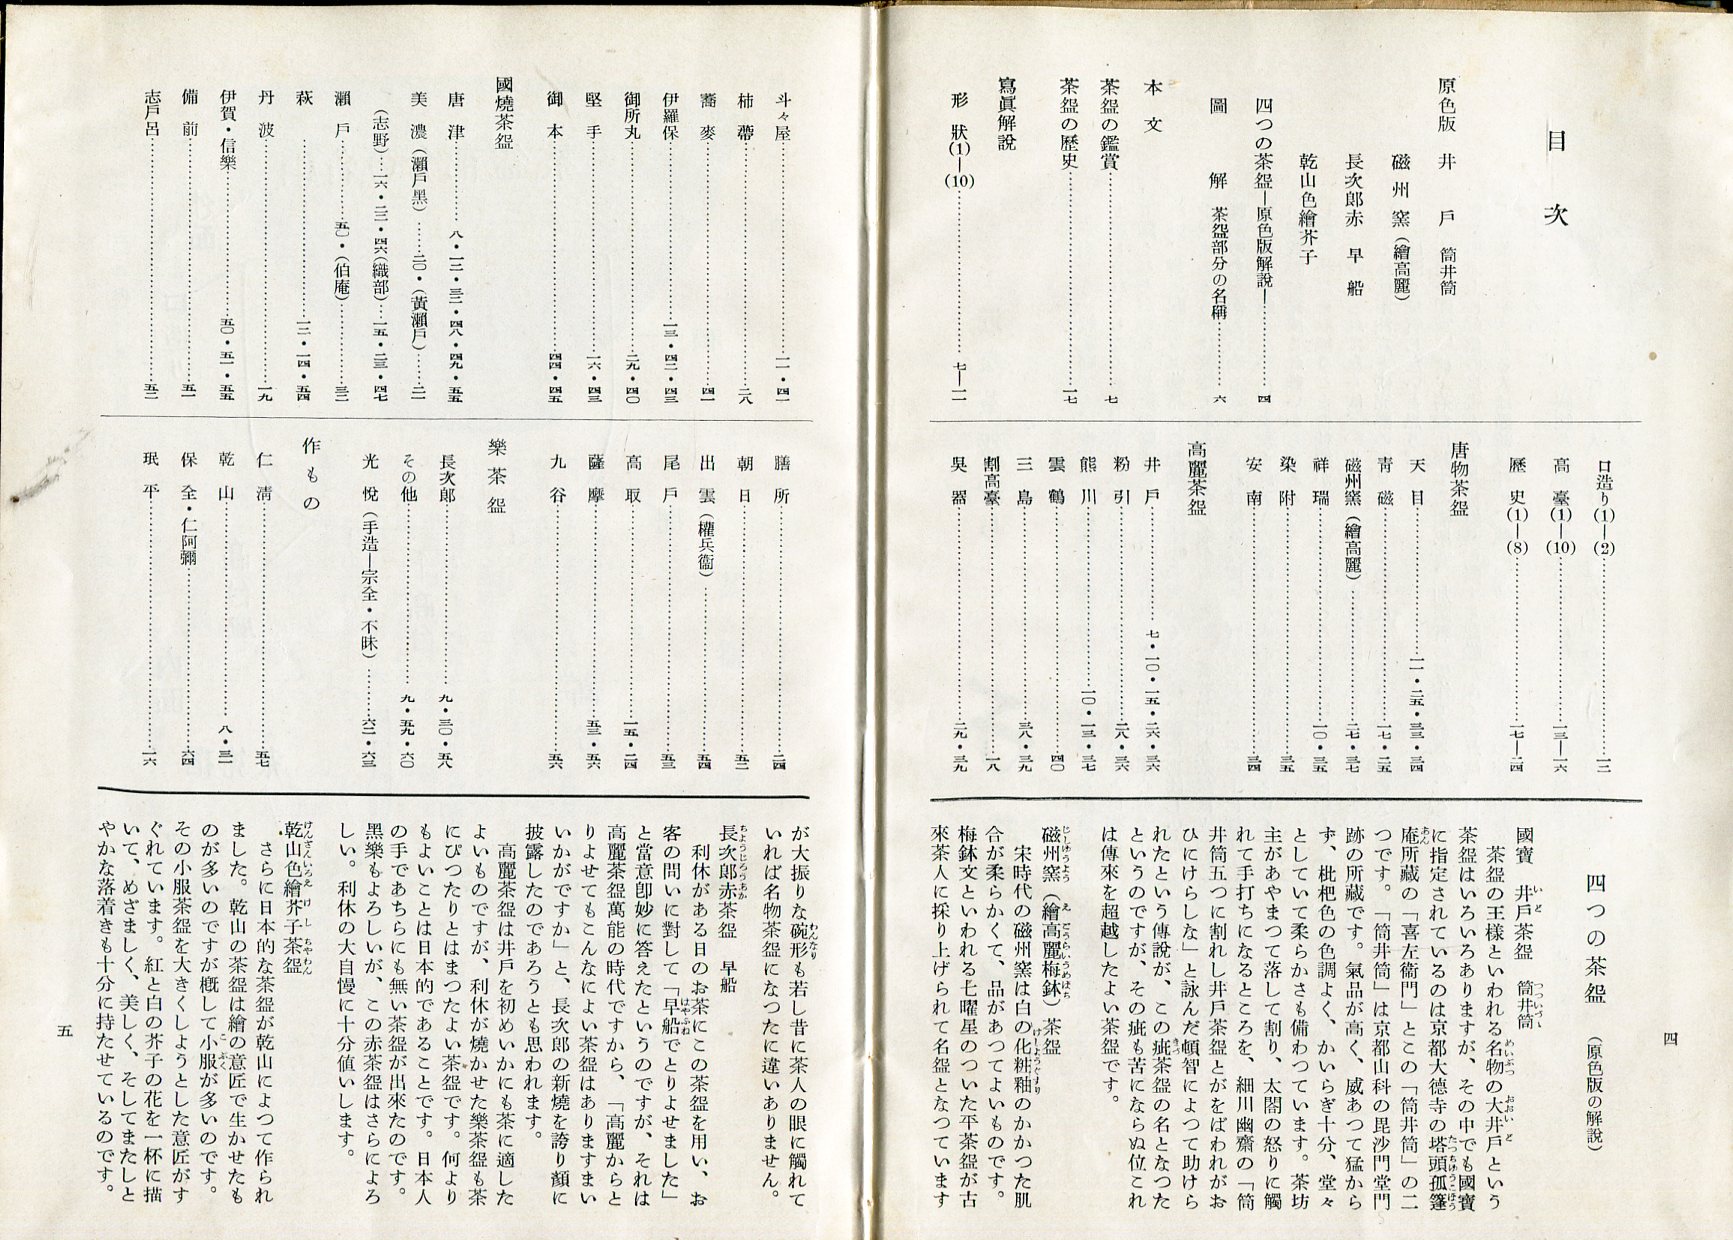 目次
原色版 井戸 筒井筒
磁州窯（繪高麗）
長次郎赤 早船
乾山色繪芥子
四つの茶盌―原色版解說―……四
圖解 茶盌部分の名稱……六
本文
茶盌の鑑賞……七
茶盌の歷史……一七
寫眞解說
形狀(1)―(10)……七―一一
口造り(1)―(2)……一二
高臺(1)―(10)……一三―一六
歷史(1)―(8)……一七―二四
唐物茶盌
天目……一一・二五・三三・三四
靑磁……一七・二五
磁州窯（繪高麗）……二七・三七
祥瑞……一〇・三五
染附……三五
安南……三四
高麗茶盌
井戶……七・一〇・一五・二六・三六
粉引……二八・三六
熊川……一〇・一三・三七
雲鶴……四〇
三島……三八・三九
割高臺……一八
吳器……二九・三九
四つの茶盌 （原色版の解說）
國寶 井戶茶盌 筒井筒
茶盌の王樣といわれる名物の大井戶という
茶盌はいろいろありますが、その中でも國寶
に指定されているのは京都大德寺の塔頭孤篷
庵所藏の「喜左衞門」とこの「筒井筒」の二
つです。「筒井筒」は京都山科の毘沙門堂門
跡の所藏です。氣品が高く、威あつて猛から
ず、枇杷色の色調よく、かいらぎ十分、堂々
としていて柔らかさも備わつています。茶坊
主があやまつて落して割り、太閤の怒りに觸
れて手打ちになるところを、細川幽齋の「筒
井筒五つに割れし井戶茶盌とがをばわれがお
ひにけらしな」と詠んだ頓智によつて助けら
れたという傳說が、この疵茶盌の名となつた
というのですが、その疵も苦にならぬ位これ
は傳來を超越したよい茶盌です。
磁州窯（繪高麗梅鉢）茶盌
宋時代の磁州窯は白の化粧釉のかかつた肌
合が柔らかくて、品があつてよいものです。
梅鉢文といわれる七曜星のついた平茶盌が古
來茶人に採り上げられて名盌となつています
四
斗々屋……一一・四一
柿蔕……二八
蕎麥……四一
伊羅保……一三・四二・四三
御所丸……二九・四〇
堅手……一六・四三
御本……四四・四五
國燒茶盌
唐津……八・一二・三二・四八・四九・五五
美濃（瀨戶黑）……二〇・（黃瀨戶）……二一
（志野）…一六・二二・四六（織部）…一五・二三・四七
瀨戶……五〇・（伯庵）……三二
萩……一二・一四・五四
丹波……一九
伊賀・信樂……五〇・五一・五五
備前……五一
志戶呂……五二
膳所……二四
朝日……五二
出雲（權兵衞）……五四
尾戶……五三
高取……一五・二四
薩摩……五三・五六
九谷……五六
樂茶盌
長次郎……九・三〇・五八
その他……九・五九・六〇
光悅（手造―宗全・不昧）……六二・六三
作もの
仁淸……五七
乾山……八・三一
保全・仁阿彌……六四
珉平……一六
が大振りな碗形も若し昔に茶人の眼に觸れて
いれば名物茶盌になつたに違いありません。
長次郎赤茶盌 早船
利休がある日のお茶にこの茶盌を用い、お
客の問いに對して「早船でとりよせました」
と當意卽妙に答えたというのですが、それは
高麗茶盌萬能の時代ですから、「高麗からと
りよせてもこんなによい茶盌はありますまい
いかがですか」と、長次郎の新燒を誇り顏に
披露したのであろうとも思われます。
高麗茶盌は井戶を初めいかにも茶に適した
よいものですが、利休が燒かせた樂茶盌も茶
にぴつたりとはまつたよい茶盌です。何より
もよいことは日本的であることです。日本人
の手であちらにも無い茶盌が出來たのです。
黑樂もよろしいが、この赤茶盌はさらによろ
しい。利休の大自慢に十分値いします。
乾山色繪芥子茶盌
さらに日本的な茶盌が乾山によつて作られ
ました。乾山の茶盌は繪の意匠で生かせたも
のが多いのですが槪して小服が多いのです。
その小服茶盌を大きくしようとした意匠がす
ぐれています。紅と白の芥子の花を一杯に描
いて、めざましく、美しく、そしてまたしと
やかな落着きも十分に持たせているのです。
五